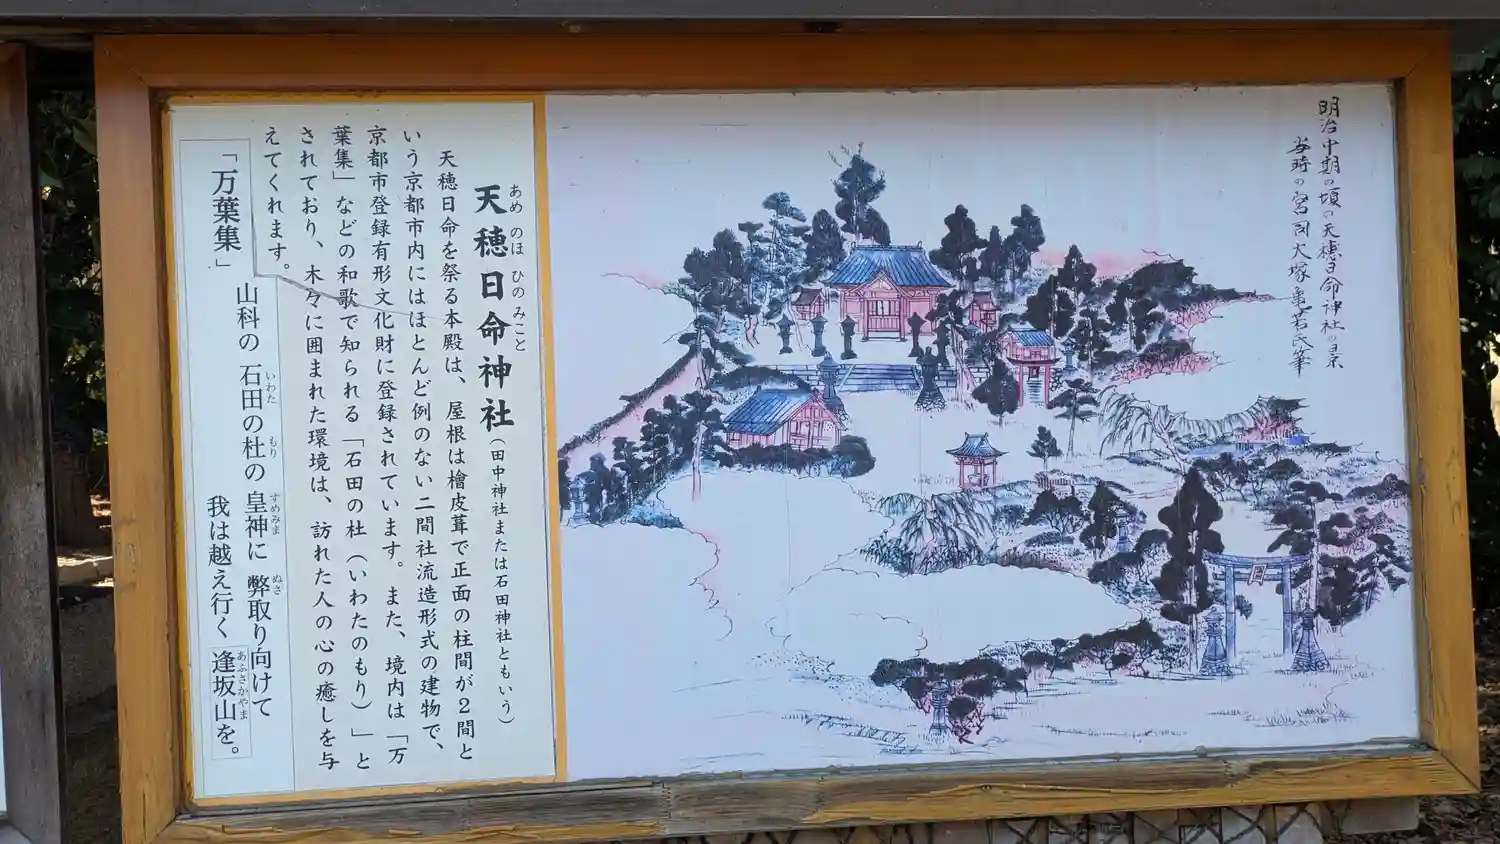 明治中期の頃の天穂日命神社の景
当時の宮司大塚亀若氏筆
あめのほひのみこと
天穂日命神社(田中神社または石田神社ともいう)
天穂日命を祭る本殿は、屋根は檜皮葺で正面の柱間が2間と
いう京都市内にはほとんど例のない二間社流造形式の建物で、
京都市登録有形文化財に登録されています。また、境内は「万
葉集」などの和歌で知られる「石田の杜(いわたのもり)」と
されており、木々に囲まれた環境は、訪れた人の心の癒しを与
えてくれます。
「万葉集」
いわた もり すめみま ぬさ
山科の 石田の杜の 皇神に 弊取り向けて
あふさかやま
我は越え行く 逢坂山を。